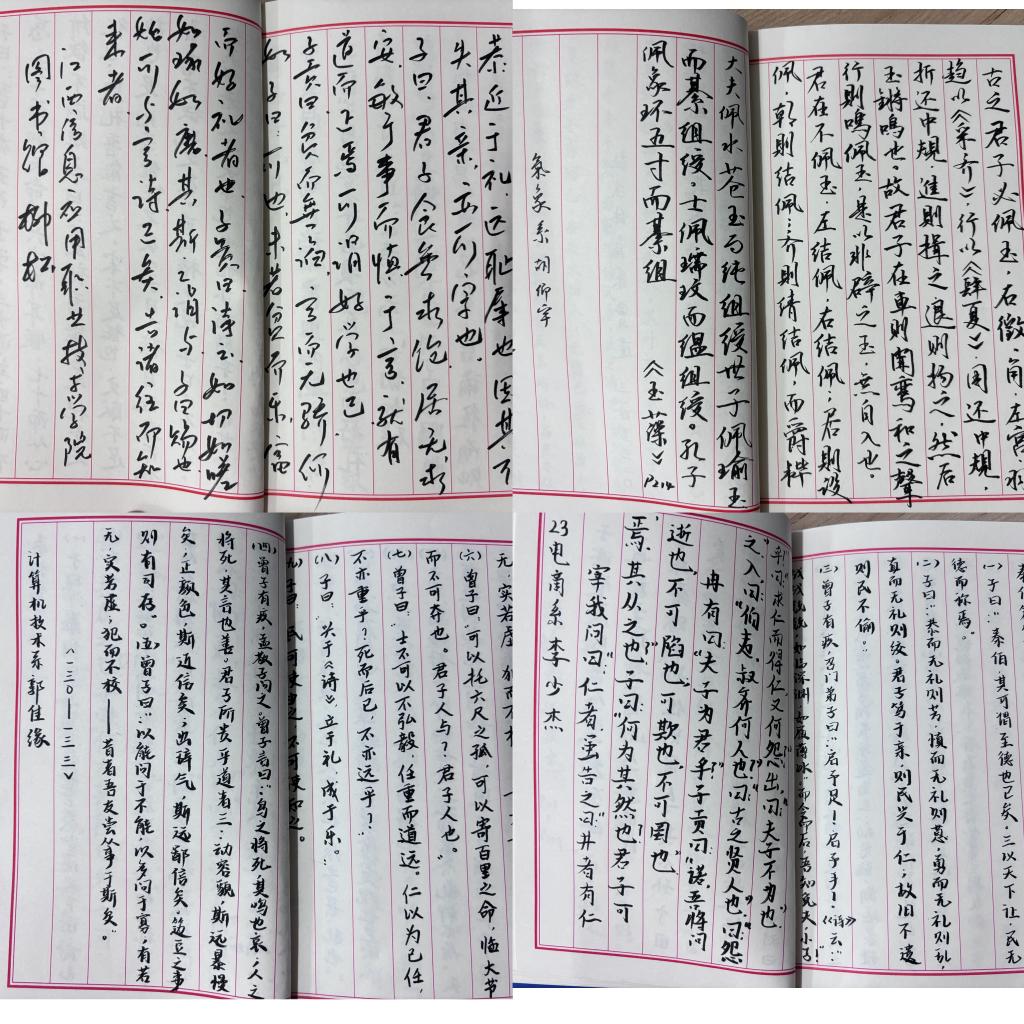 恭近于礼，远耻辱也，因其不
失其亲，亦可宗也。
子曰，君子食无求饱，居无求
安，敏于事而慎于言，就有
道而正焉，可谓好学也已
子贡曰，贫而无谄，富而无骄，何
如，子曰，可也，未若贫而乐，富
而好礼者也，子贡曰，诗云，如切如磋
如琢如磨，其斯之谓与，子曰，赐也
始可与言诗已矣，告诸往而知
来者
江西信息应用职业技术学院
图书馆 柳栋
古之君子必佩玉，右徵、角，左宫、羽
趋以《采齐》，行以《肆夏》，周还中规，
折还中规，进则揖之，退则扬之，然后
玉锵鸣也，故君子在车则闻鸾和之聲
行则鸣佩玉，是以非辟之玉，无自入也。
君在不佩玉，左结佩，右结佩，居则设
佩，朝则结佩，齐则綪结佩，而爵韠
大夫佩水苍玉而纯组绶，世子佩瑜玉
而綦组绶，士佩瓀玟而缊组绶。孔子
佩象环五寸而綦组 《玉藻》P214
气象系 胡仰宇
无，实若虚，犯而不校
（六）曾子曰：“可以托六尺之孤，可以寄百里之命，临大节
而不可夺也。君子人与？君子人也。”
（七）曾子曰：“士不可以不弘毅，任重而道远。仁以为己任，
不亦重乎？死而后已，不亦远乎？”
（八）子曰：“兴于《诗》，立于礼，成于乐。”
（九）子曰：“民可使由之，不可使知之。
（四）曾子有疾，孟敬子问之，曾子言曰：“鸟之将死，其鸣也哀，人之
将死，其言也善。君子所贵乎道者三：动容貌，斯远暴慢
矣，正颜色，斯近信矣，出辞气，斯远鄙倍矣。笾豆之事
则有司存。”（五）曾子曰：“以能问于不能，以多问于寡，有若
无，实若虚，犯而不校——昔者吾友尝从事于斯矣。”
（一三〇——一三三）
计算机技术系郭佳缘
泰伯
（一）子曰：“泰伯，其可谓至德也已矣，三以天下让，民无
德而称焉。
（二）子曰：“恭而无礼则劳，慎而无礼则葸，勇而无礼则乱，
直而无礼则绞。君子笃于亲，则民兴于仁，故旧不遗
则民不偷。”
（三）曾子有疾，召门弟子曰：“启予足！启予手！《诗云：》
战战兢兢，如临深渊，如履薄冰”而今而后，吾知免夫，小子！
乎？”曰：“求仁而得仁，又何怨”出，曰：“夫子不为也”
之，入，曰：“伯夷、叔齐何人也？”曰：“古之贤人也”曰：“怨
冉有曰：“夫子为君乎？”子贡曰：“诺，吾将问
逝也，不可陷也，可欺也，不可罔也”
焉，其从之也？”子曰：“何为其然也？君子可
宰我问曰：“仁者，虽告之曰‘井者有仁
23电商系 李少杰